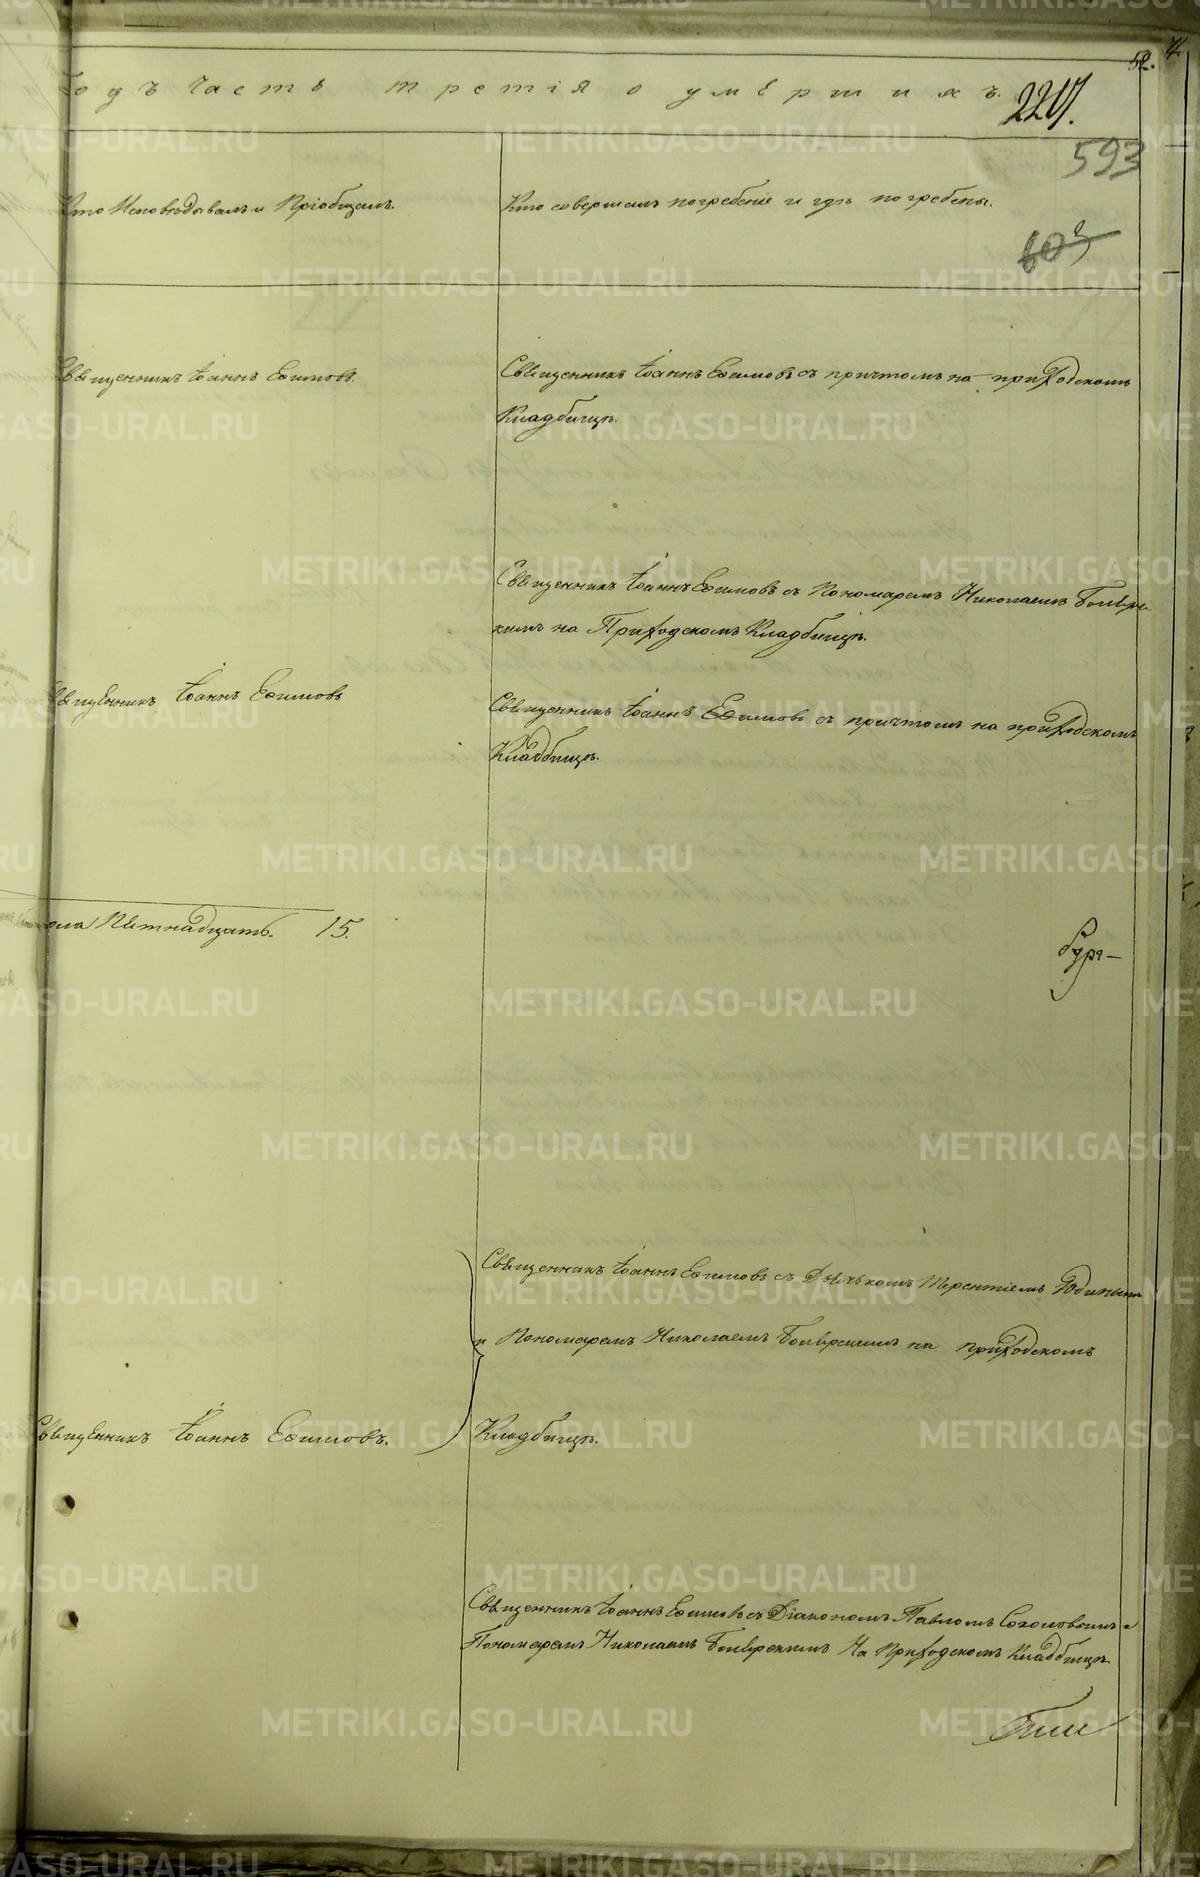 54.
одъ часть третія о умершихъ.
2217.
593
603
Кто Исповѣдывалъ и Пріобщалъ.
Кто совершалъ погребеніе и гдѣ погребены.
Священникъ Іоаннъ Ефимовъ.
Священникъ Іоаннъ Ефимовъ съ причтомъ на приходскомъ
Кладбищѣ.
Священникъ Іоаннъ Ефимовъ съ Пономаремъ Николаемъ
кимъ на Приходскомъ Кладбищѣ.
Священникъ Іоаннъ Ефимовъ
Священникъ Іоаннъ Ефимовъ съ причтомъ на приходскомъ
Кладбищѣ.
пола Пятнадцать. 15.
Священникъ Іоаннъ Ефимовъ съ Дьячькомъ Терентіемъ
и Пономаремъ Николаемъ на приходскомъ
Священникъ Іоаннъ Ефимовъ.
Кладбищѣ.
Священникъ Іоаннъ Ефимовъ съ Діакономъ Павломъ Соколовымъ и
Пономаремъ Николаемъ На Приходскомъ Кладбищѣ.
METRIKI.GASO-URAL.RU